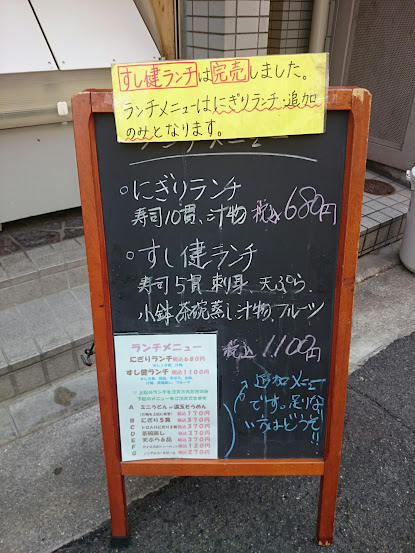 すし健ランチは完売しました。
ランチメニューはにぎりランチ・追加
のみとなります。
ランチメニュー
○にぎりランチ
寿司10貫、汁物 税込680円
○すし健ランチ
寿司5貫 刺身、天ぷら、
小鉢 茶碗蒸し 汁物、フルーツ
税込1100円
追加メニュー
です。足りな
い方はどうぞ!!
ランチメニュー
にぎりランチ 税込680円
すし健ランチ 税込1100円
A ミニうどん or 温玉そうめん
税込170円
B にぎり5貫 税込370円
C 税込370円
D 茶碗蒸し 税込210円
E 天ぷら6品 税込370円
F 税込210円
G 税込270円